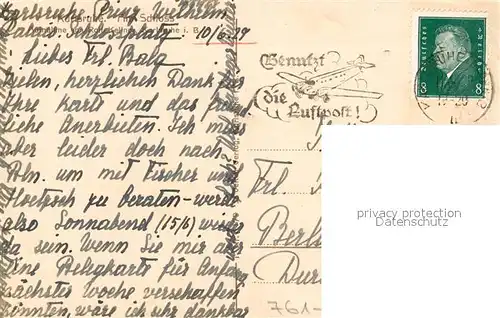 Karlsruhe Prinz Wilhelm
Palais, Schlossplatz 10/6/29
Karlsruhe. Am Schloss
Liebes Frl. Balg
Vielen, herzlichen Dank für
Ihre Karte und das freund
liche Anerbieten. Ich muss
aber leider doch nach
Bln. um mit Fischer und
Hoetzsch zu beraten - werde
also Sonnabend (15/6) wieder
da sein. Wenn Sie mir aber
eine Beligkarte für Anfang
nächster Woche verschaffen
könnten, wäre ich Ihr dankbar
Benutzt
die
Luftpost!
Deutsches Reich
8 8
Frl.
Berlin
761-
privacy protection
Datenschutz